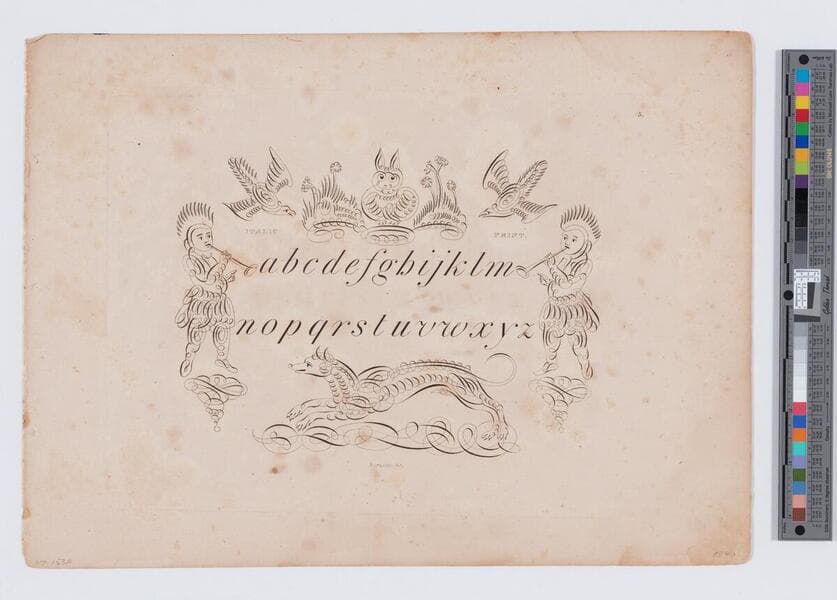 ITALIC PRINT.
abcdefghijklm
nopqrstuvwxyz